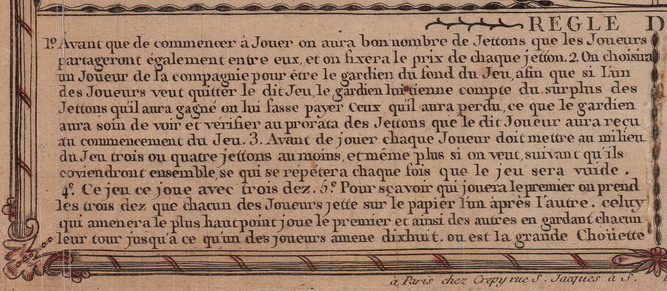 REGLE D
1º. Avant que de commencer à Jouer on aura bon nombre de Jettons que les Joueurs
partageront également entre eux, et on fixera le prix de chaque jetton. 2. On choisira
un Joueur de la compagnie pour être le gardien du fond du Jeu, afin que si l'un
des Joueurs veut quitter le dit Jeu, le gardien lui tienne compte du surplus des
Jettons qu'il aura gagné on lui fasse payer Ceux qu'il aura perdu, ce que le gardien
aura soin de voir et vérifier au prorata des Jettons que le dit Joueur aura reçu
au commencement du Jeu. 3. Avant de jouer chaque Joueur doit mettre au milieu
du Jeu trois ou quatre jettons au moins, et même plus si on veut, suivant qu'ils
coviendront ensemble, se qui se repétera chaque fois que le jeu sera vuide.
4º. Ce jeu ce joue avec trois dez. 5º. Pour sçavoir qui jouera le premier on prend
les trois dez que chacun des Joueurs jette sur le papier l'un après l'autre. celuy
qui amenera le plus haut point joue le premier et ainsi des autres en gardant chacun
leur tour jusqu'a ce qu'un des joueurs amene dixhuit. ou est la grande Choüette
à Paris chez Crepy rue S. Jacques à S.